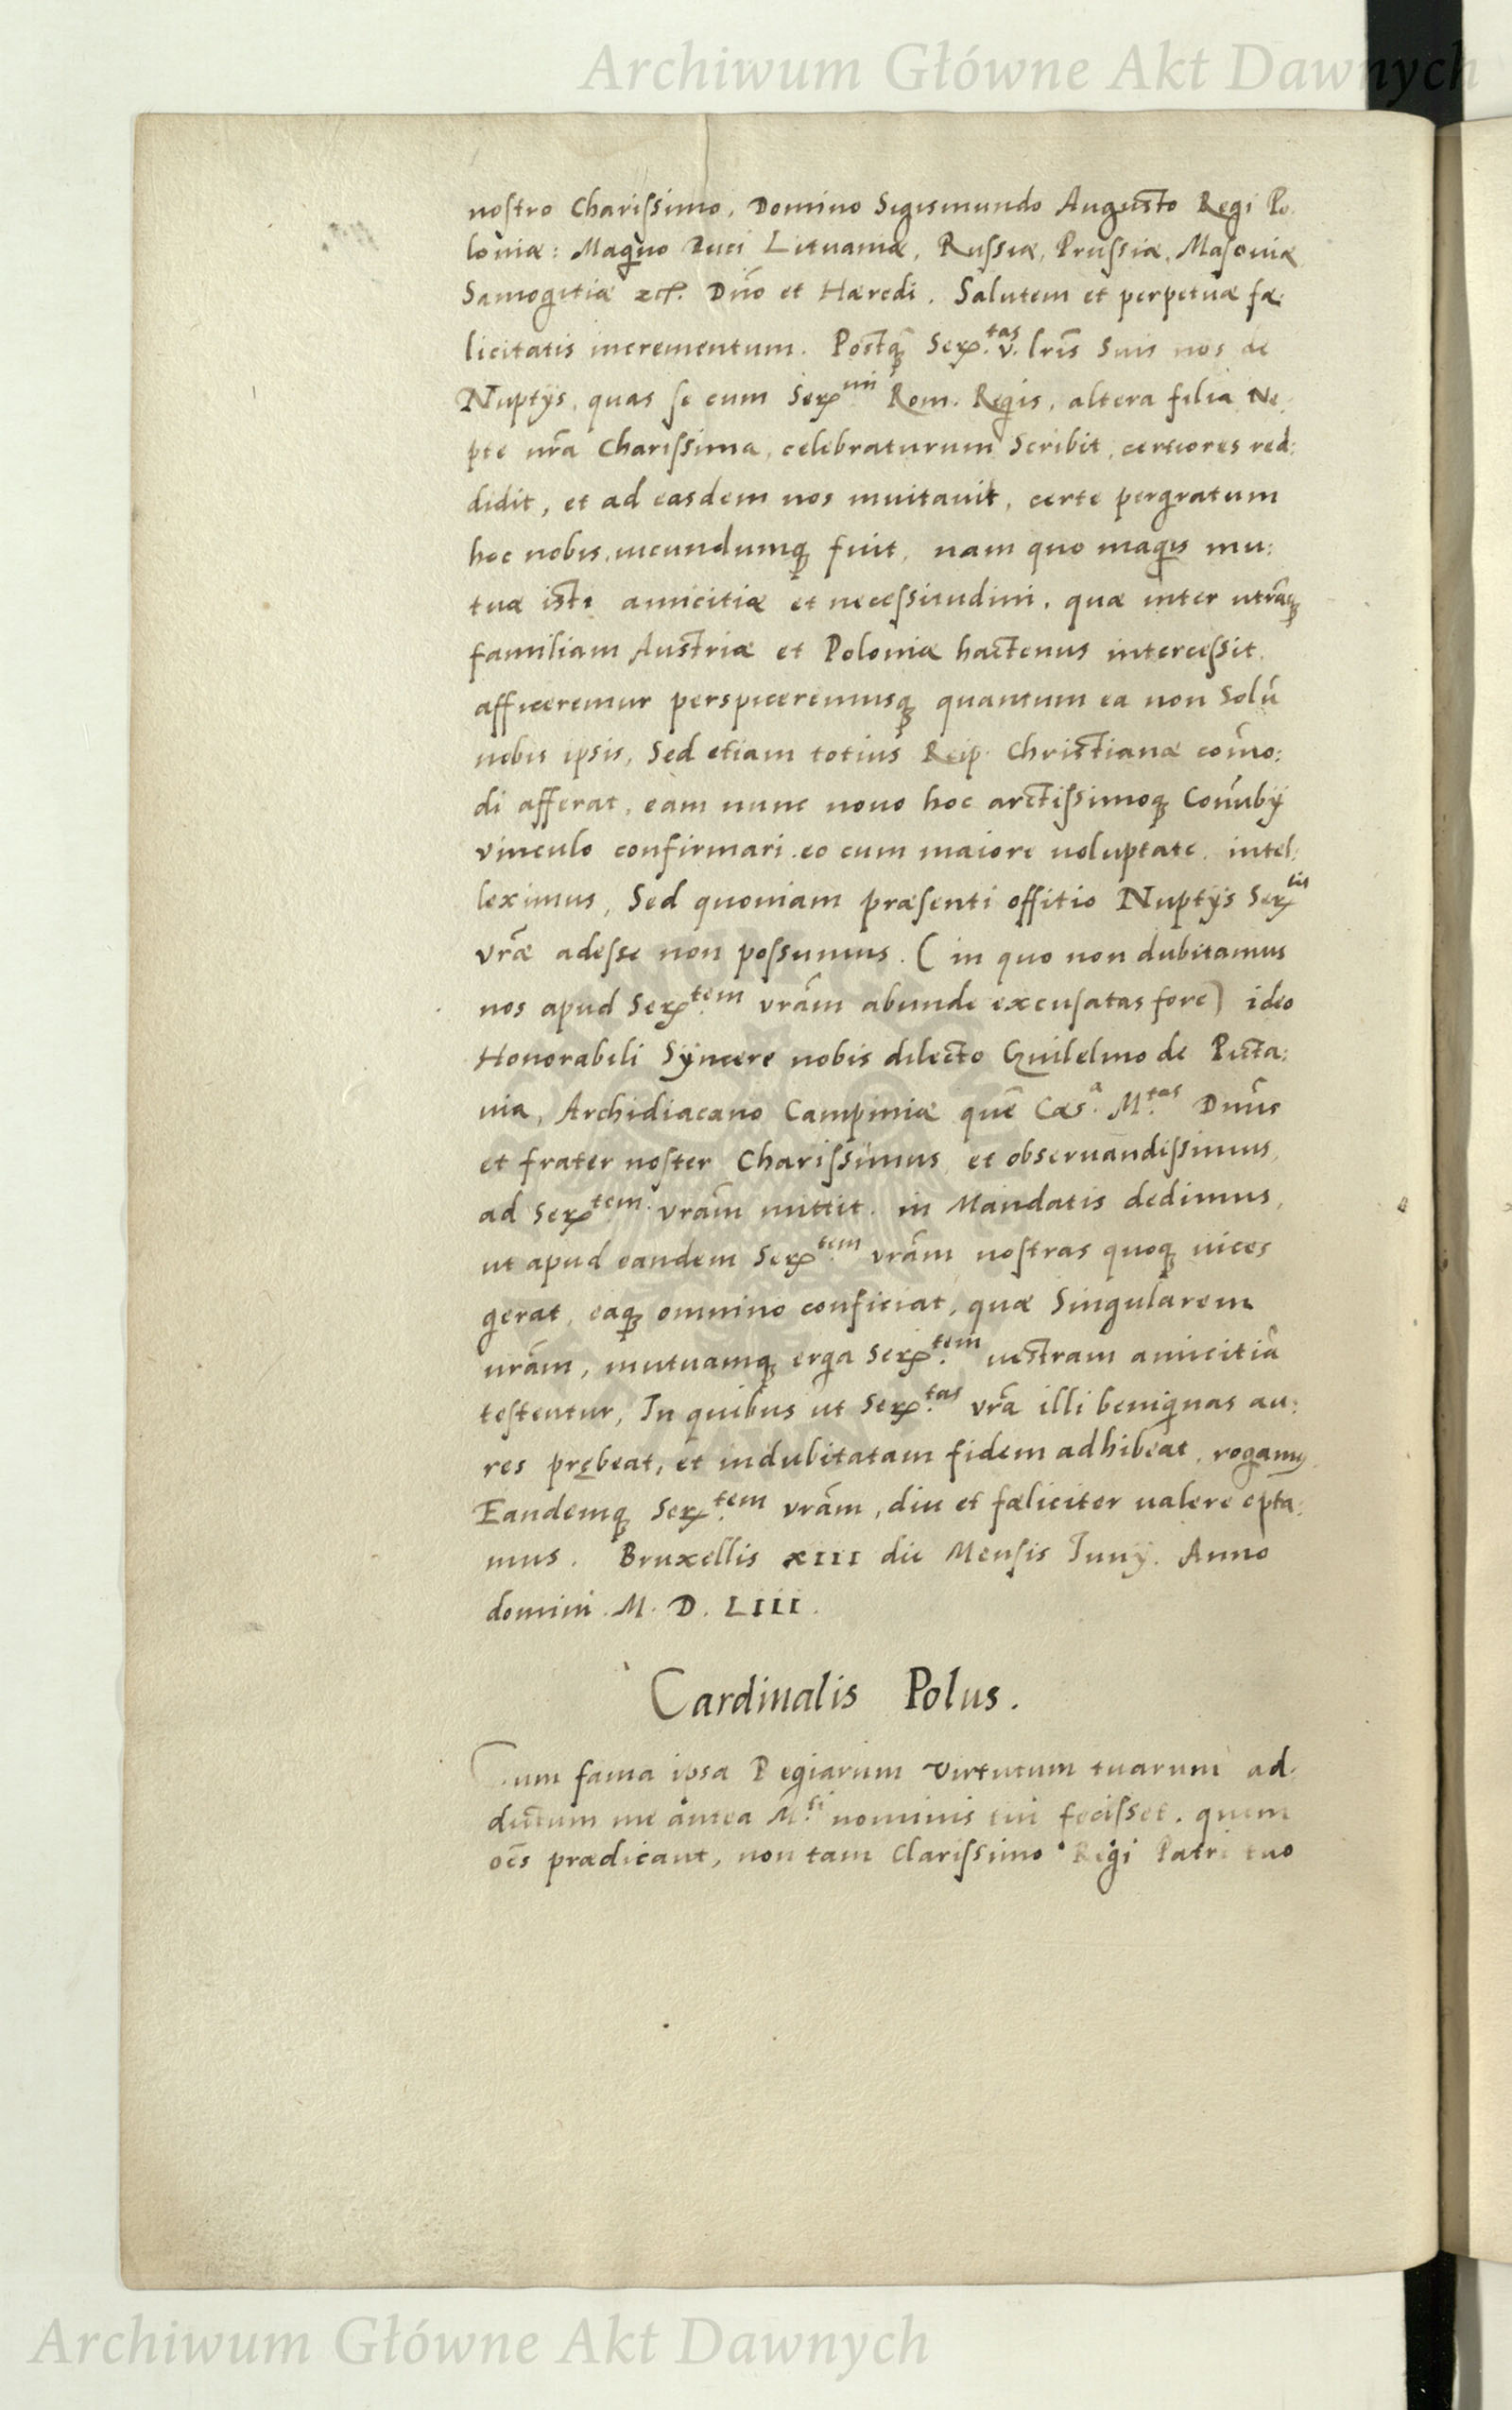 Archiwum Główne Akt Dawnych
nostro Charissimo, Domino Sigismundo Augusto Regi Po:
loniæ: Magno Duci Lituaniæ, Russiæ, Prussiæ, Masoviæ
Samogitiæ zc. Dño et Hæredi. Salutem et perpetuæ fæ:
licitatis incrementum. Postq̃ Ser.tas v. lr̃is suis nos de
Nuptÿs, quas se cum Ser.mi Rom. Regis, altera filia Ne:
pte nr̃a Charissima, celebraturum Scribit, certiores red:
didit, et ad easdem nos inuitauit, certe pergratum
hoc nobis, iucundumq; fuit, nam quo magis mu:
tuæ isti amicitiæ et necessitudini, quæ inter utrãq;
familiam Austriæ et Poloniæ hactenus intercessit,
afficeremur perspiceremusq; quantum ea non Solũ
nobis ipsis, Sed etiam totius Reip. Christianæ com̃o:
di afferat, eam nunc nouo hoc arctissimoq; Con̄ubÿ
vinculo confirmari, eo cum maiore uoluptate, intel:
leximus, Sed quoniam præsenti offitio Nuptÿs Ser.tis
vr̃æ adesse non possumus. (in quo non dubitamus
nos apud Ser.tem vrãm abunde excusatas fore) ideo
Honorabili Sÿncere nobis dilecto Guilelmo de Picta:
uia, Archidiacano Campiniæ quẽ Cæs.a M.tas Dnũs
et frater noster Charissimus et obseruandissimus,
ad Ser.tem vrãm mittit. in Mandatis dedimus,
ut apud eandem Ser.tem vrãm nostras quoq; uices
gerat, eaq; omnino conficiat, quæ Singularem
nrãm, mutuamq; erga Ser.tem uestram amicitiã
testentur, In quibus ut Ser.tas vrã illi benignas au:
res prębeat, et indubitatam fidem adhibeat, rogamus
Eandemq; Ser.tem vrãm, diu et fæliciter ualere opta:
mus. Bruxellis XIII die Mensis Junÿ. Anno
domini. M. D. LIII.
Cardinalis Polus.
Cum fama ipsa Regiarum virtutum tuarum ad:
dictum me antea M.ti nominis tui fecisset, quem
oẽs prædicant, non tam Clarissimo Regi Patri tuo
Archiwum Główne Akt Dawnych